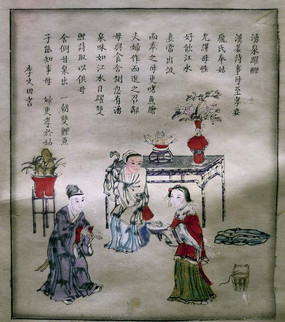 湧泉躍鯉
漢姜詩事母至孝妻
龐氏奉姑
尤謹母性
好飲江水
妻嘗出汲
而奉之母更嗜魚膾
夫婦作而進之召鄰
母與食舍側忽有湧
泉味如江水日躍雙
鯉詩取以供母
舍側甘泉出 一朝雙鯉魚
子能知事母 婦更孝於姑
李文田書